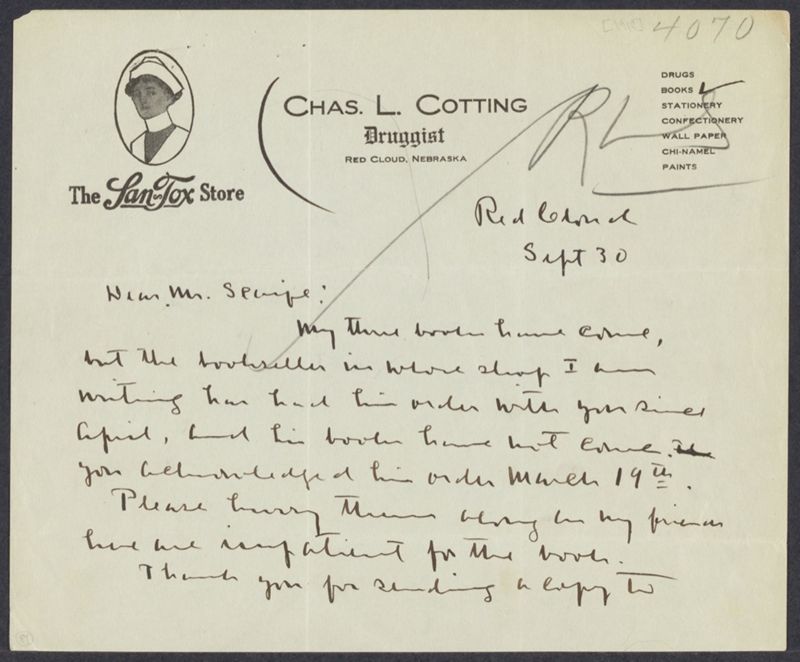 4070
CHAS. L. COTTING
Druggist
RED CLOUD, NEBRASKA
The San-Tox Store
DRUGS
BOOKS
STATIONERY
CONFECTIONERY
WALL PAPER
CHI-NAMEL
PAINTS
RLS
Red Cloud
Sept 30
Dear Mr. Scaife:
My three books have come,
but the bookseller in whose shop I am
writing has had his order with you since
April, and his books have not come.
You acknowledged his order March 19th.
Please hurry them along as my friends
here are impatient for the book.
Thank you for sending a copy to